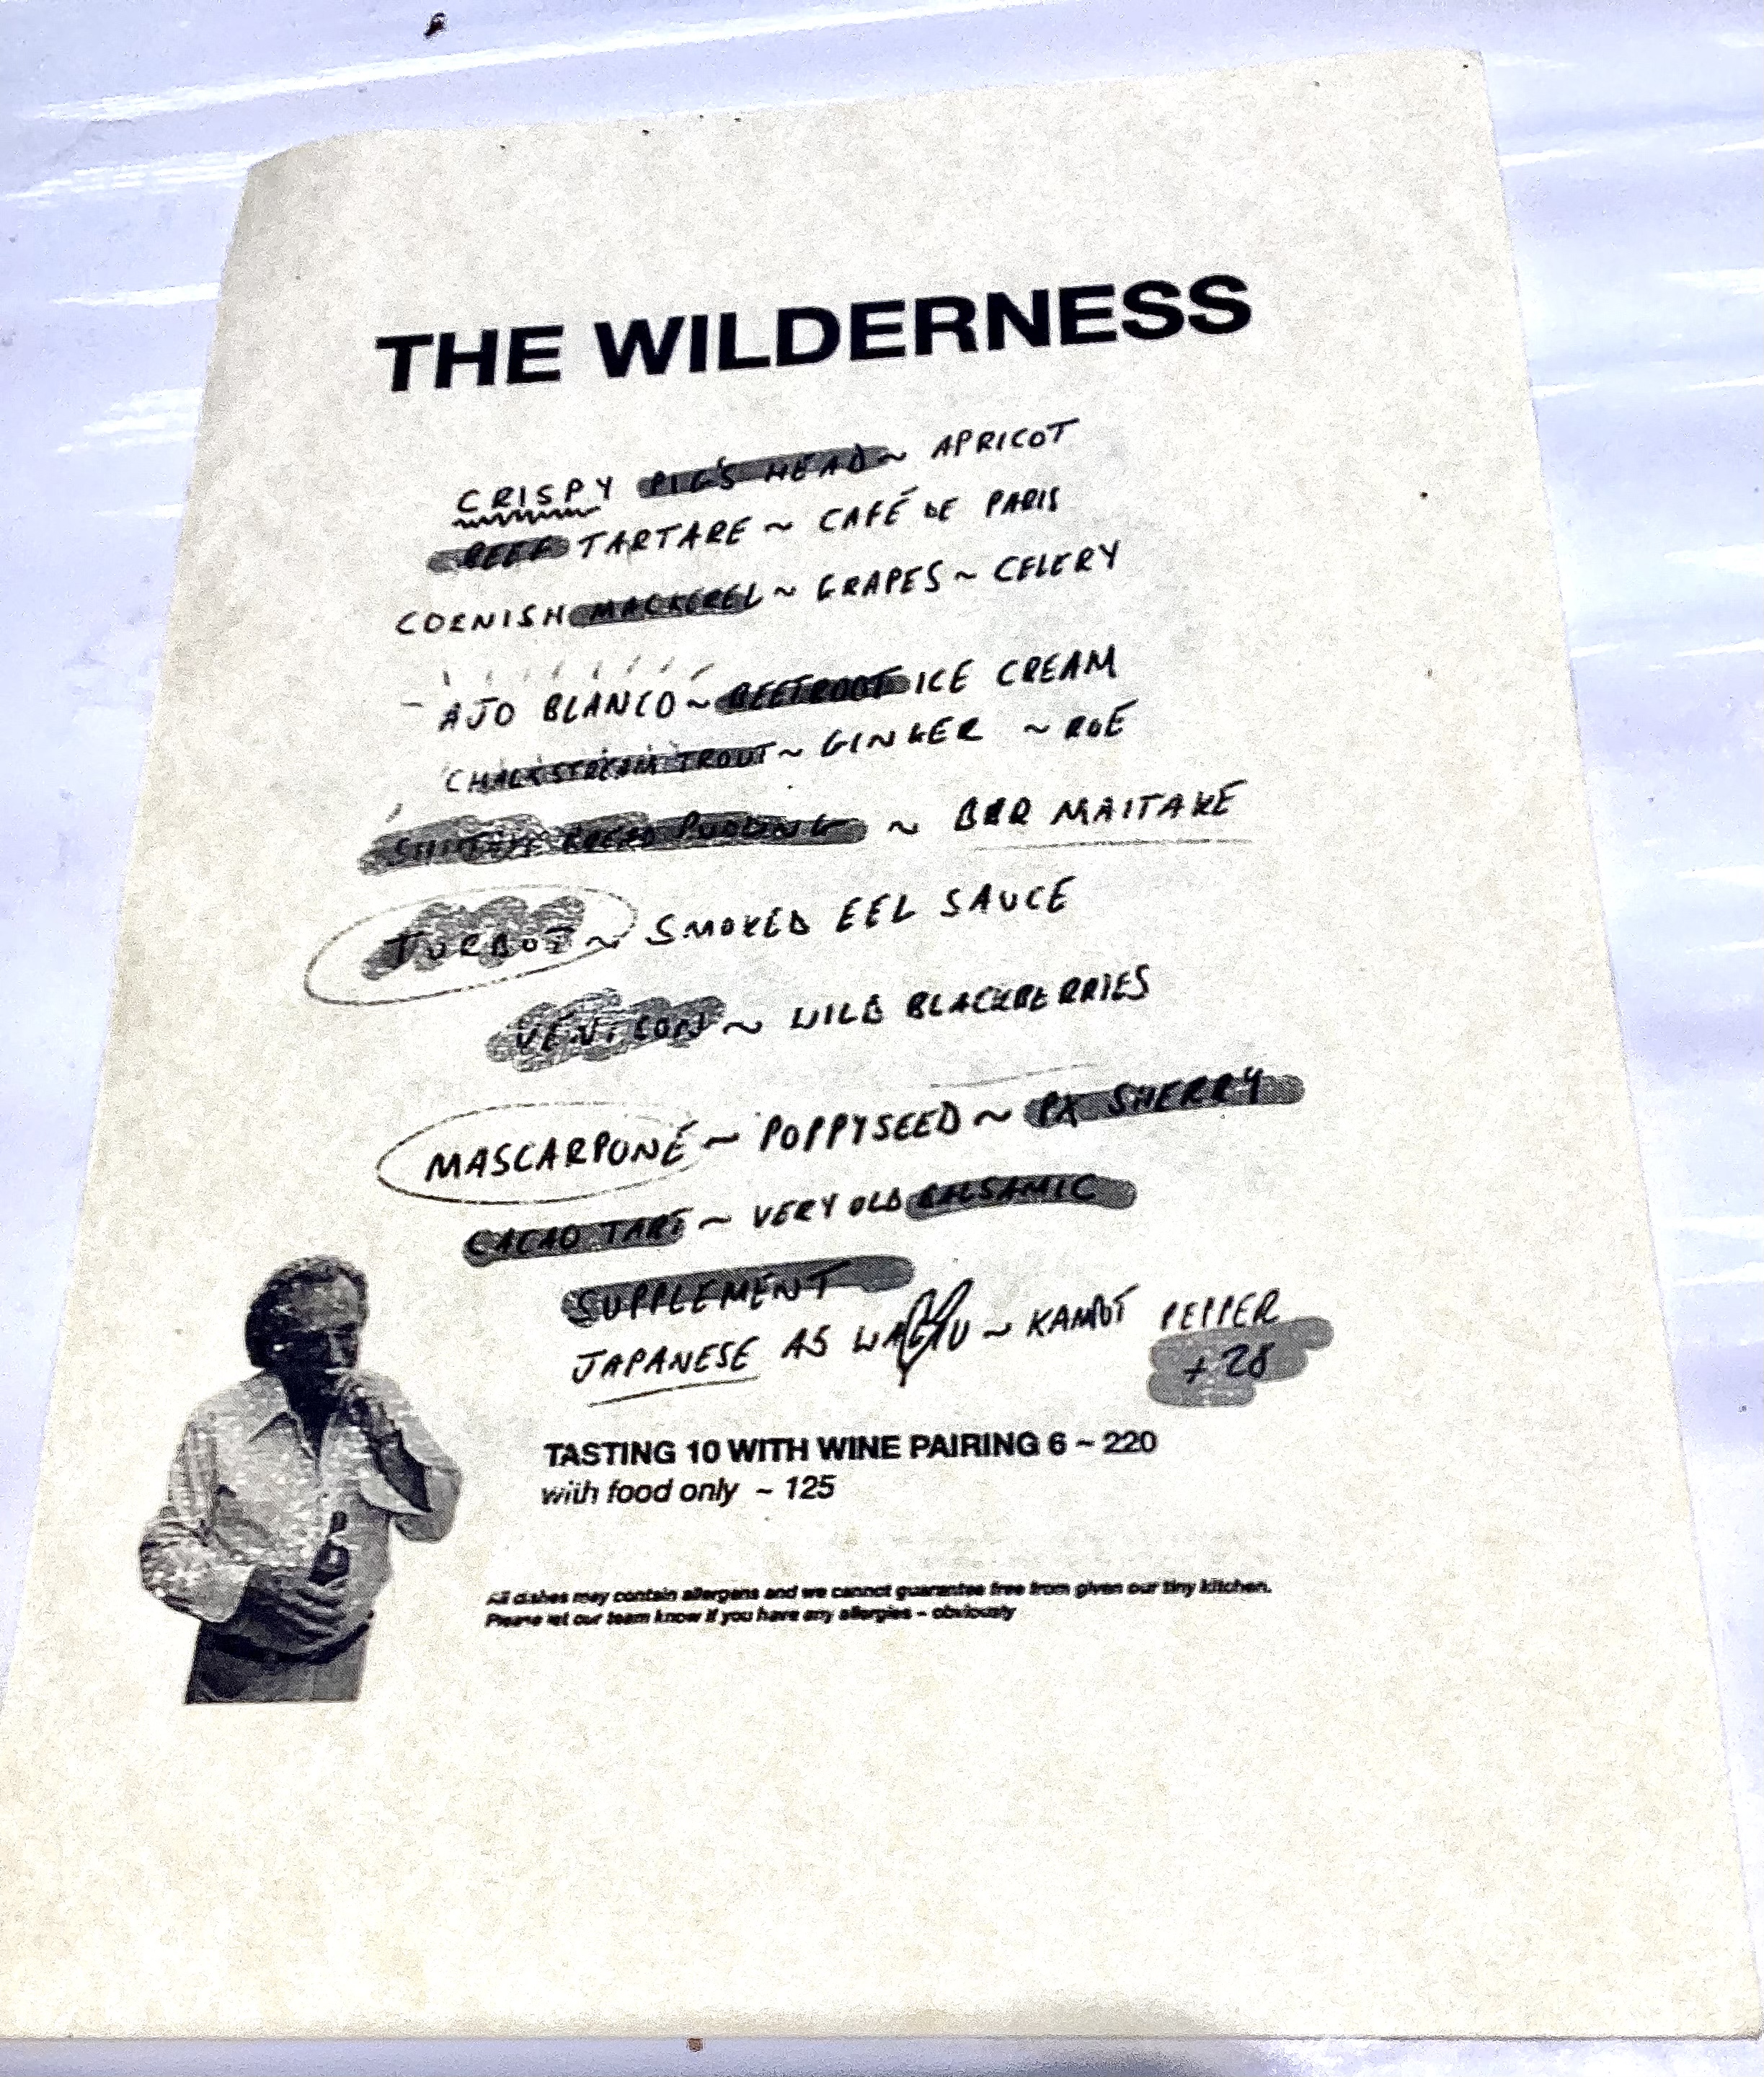 THE WILDERNESS
CRISPY PIG'S HEAD ~ APRICOT
BEEF TARTARE ~ CAFÉ DE PARIS
CORNISH MACKEREL ~ GRAPES ~ CELERY
AJO BLANCO ~ BEETROOT ICE CREAM
CHALKSTREAM TROUT ~ GINGER ~ ROE
BREAD PUDDING ~ BBQ MAITAKE
TURBOT ~ SMOKED EEL SAUCE
VENISON ~ WILD BLACKBERRIES
MASCARPONÉ ~ POPPYSEED ~ PX SHERRY
CACAO TART ~ VERY OLD BALSAMIC
SUPPLEMENT
JAPANESE A5 WAGYU ~ KAMPOT PEPPER
+ 28
TASTING 10 WITH WINE PAIRING 6 ~ 220
with food only ~ 125
All dishes may contain allergens and we cannot guarantee free from given our tiny kitchen.
Please let our team know if you have any allergies - obviously